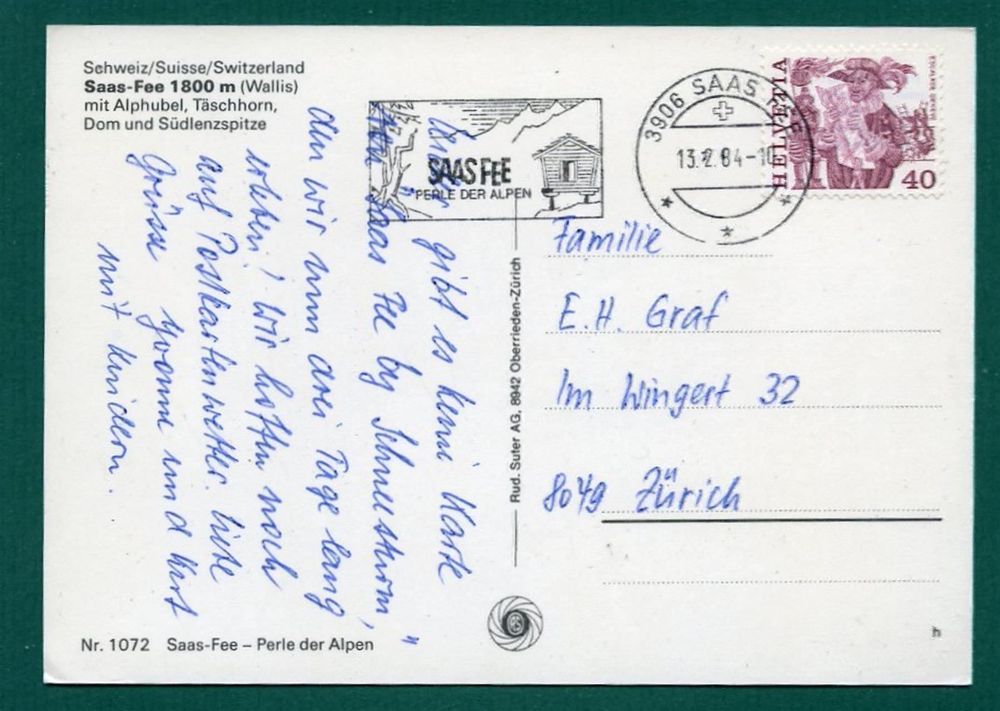 Schweiz/Suisse/Switzerland
Saas-Fee 1800 m (Wallis)
mit Alphubel, Täschhorn,
Dom und Südlenzspitze
SAAS FEE
PERLE DER ALPEN
3906 SAAS FEE
13.2.84-10
HELVETIA
ESCALADE GENEVE
40
Leider gibt es keine Karte
von "Saas Fee by Schneesturm,"
den wir nun drei Tage lang
erleben! Wir hoffen noch
auf Postkartenwetter. Liebe
Grüsse Yvonne und Kurt
mit Kindern.
Familie
E.H. Graf
Im Wingert 32
8049 Zürich
Rud. Suter AG, 8942 Oberrieden-Zürich
Nr. 1072 Saas-Fee – Perle der Alpen
h